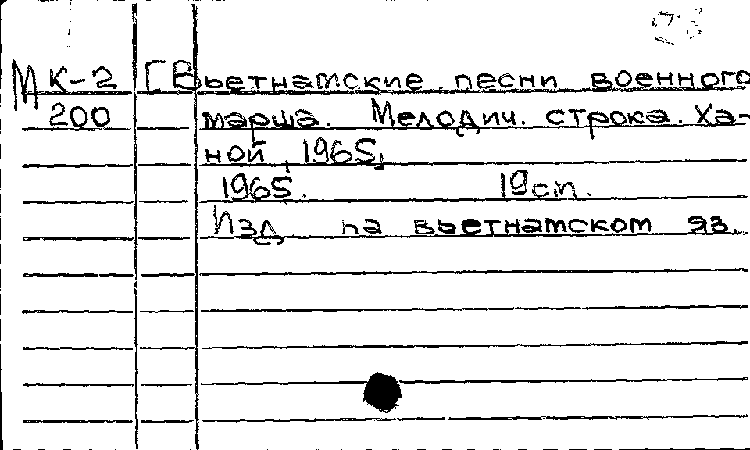 М К-2 [Вьетнамские песни военного
200 марша. Мелодич. строка. Ха-
ной, 1965,
1965. 19 сп.
Изд на вьетнамском яз.